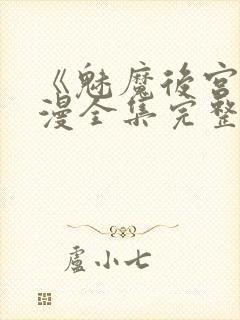 《魅魔後宮
漫全集完整
盧小七